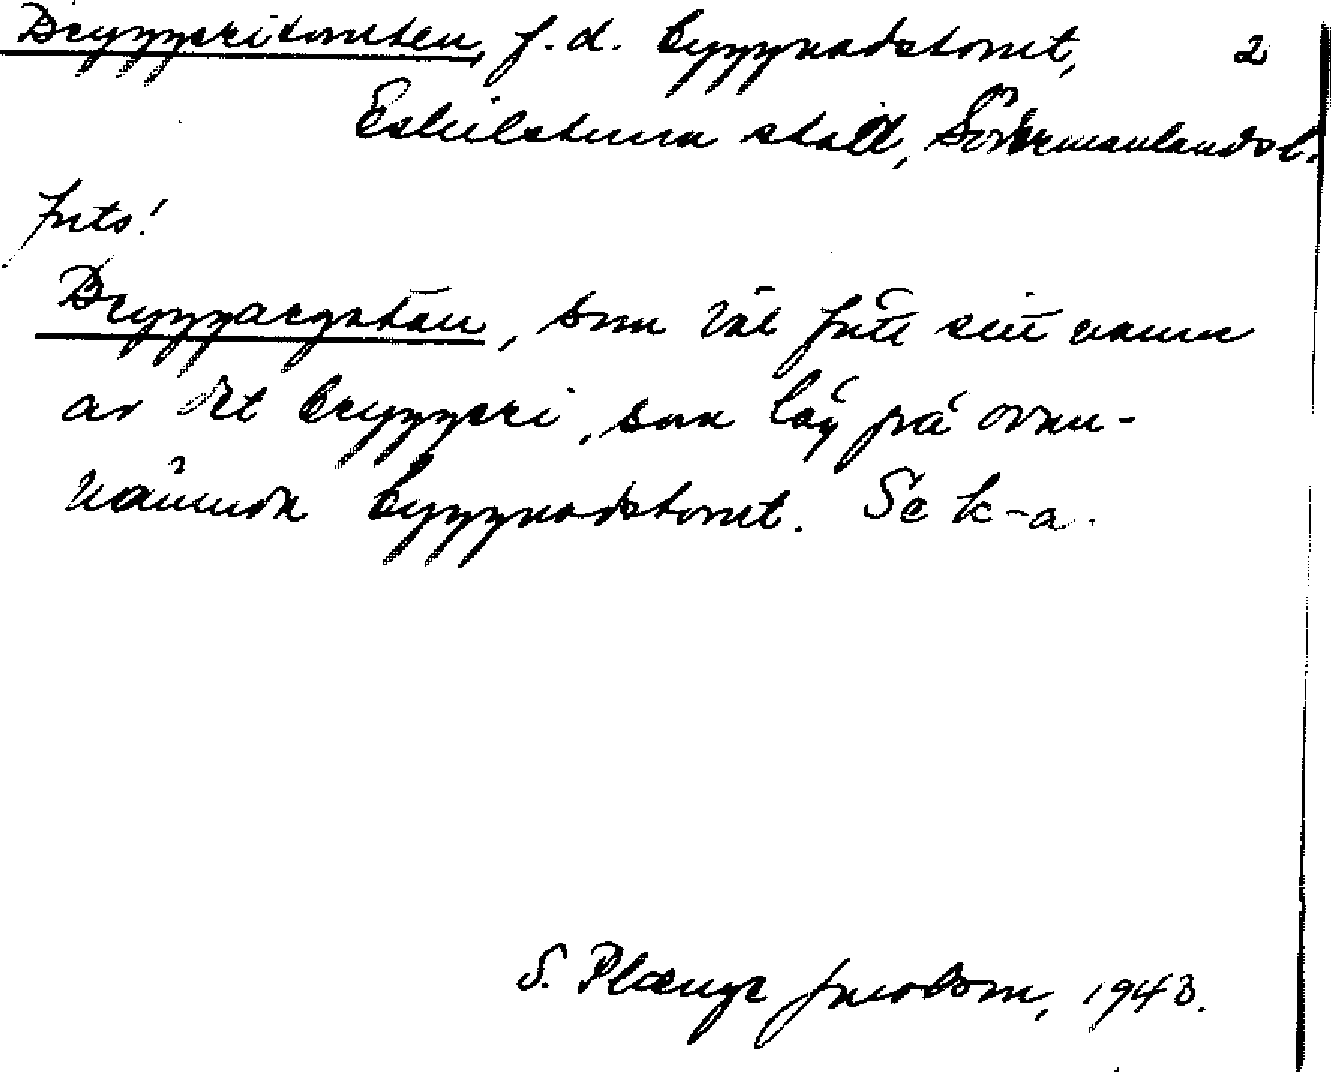 Bryggeritomten, f.d. byggnadstomt, 2
Eskilstuna stad, Södermanlands l.
forts!
Bryggargatan, som väl fått sitt namn
av det bryggeri, som låg på ovan-
nämnda byggnadstomt. Se k-a.
S. Plænge Jacobson, 1943.